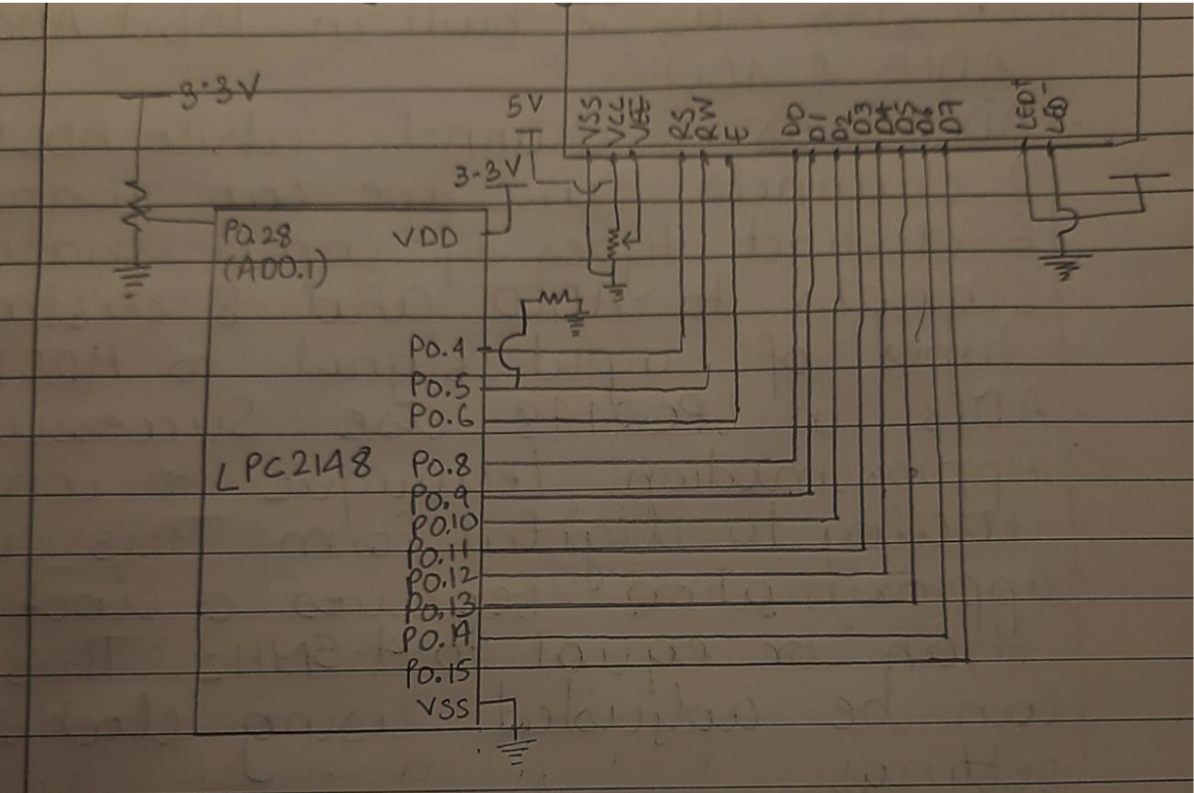 3.3V
5V
3.3V
VSS
VCC
VEE
RS
RW
E
D0
D1
D2
D3
D4
D5
D6
D7
LED+
LED-
P0.28
(AD0.1)
VDD
P0.4
P0.5
P0.6
LPC2148
P0.8
P0.9
P0.10
P0.11
P0.12
P0.13
P0.14
P0.15
VSS